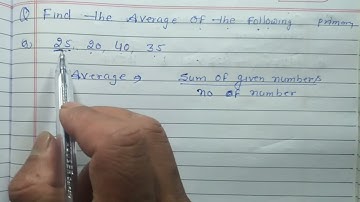 Q Find the Average of the following primary
a) 25, 20, 40, 35
Average → Sum of given numbers
no of number